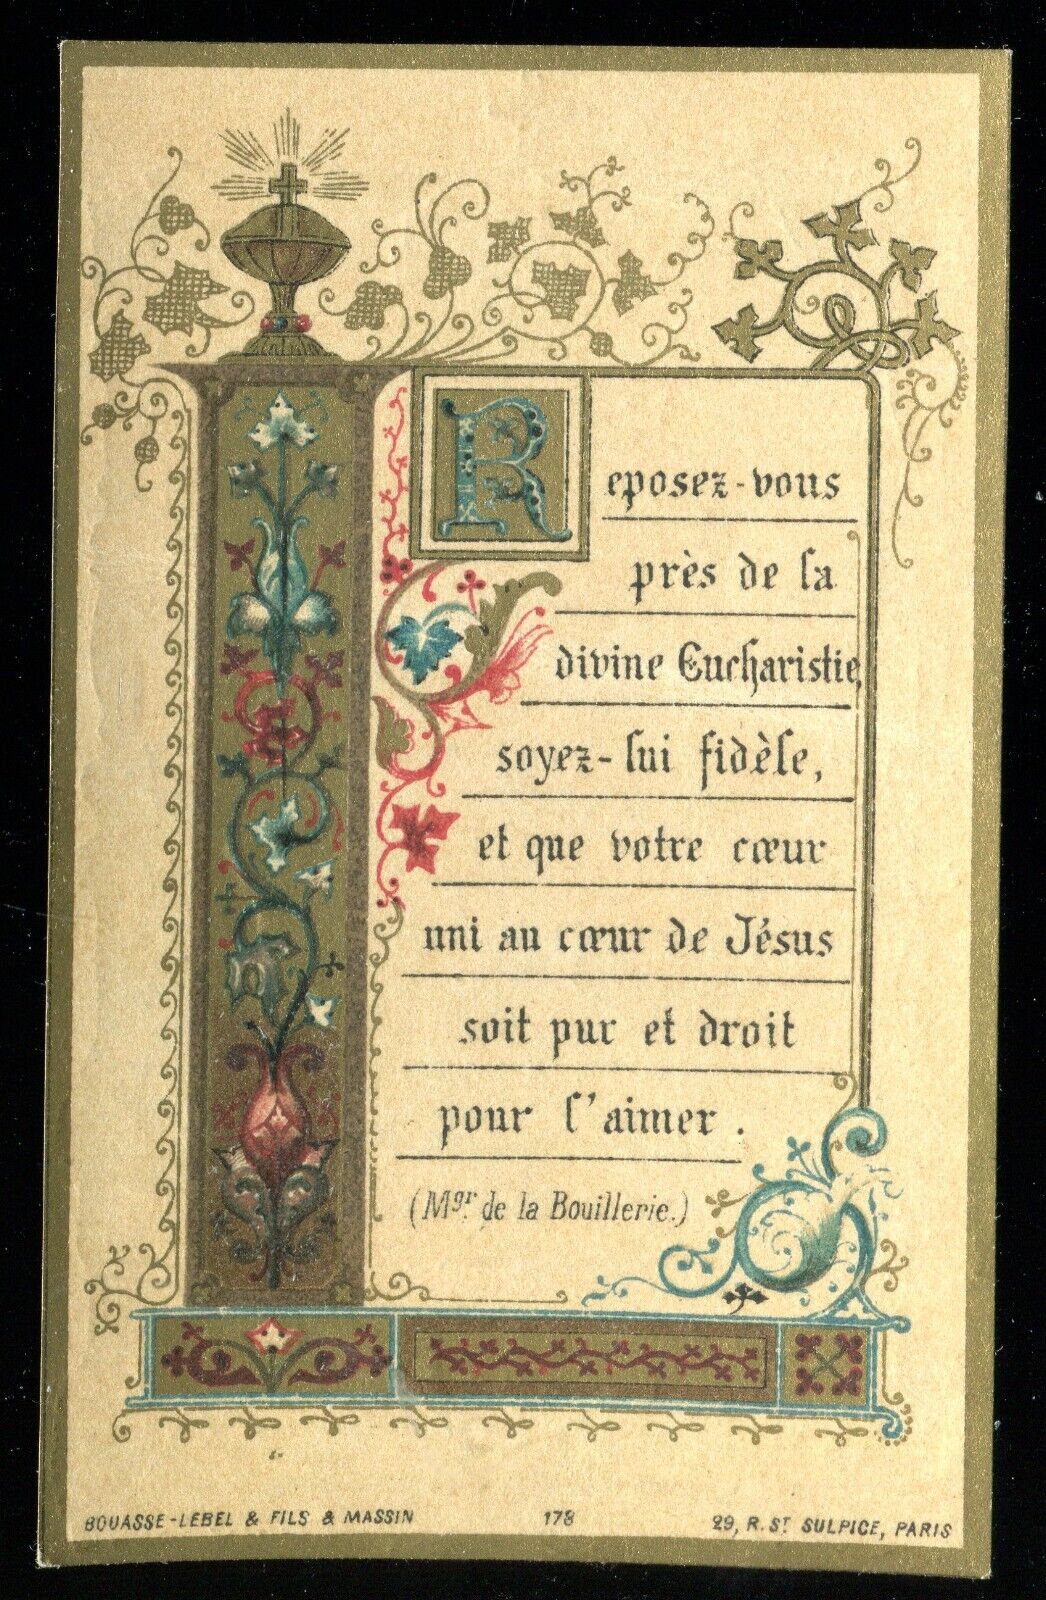 Reposez-vous
près de la
divine Eucharistie,
soyez-lui fidèle,
et que votre cœur
uni au cœur de Jésus
soit pur et droit
pour l'aimer.
(Mgr. de la Bouillerie.)
BOUASSE-LEBEL & FILS & MASSIN 178 29, R. ST SULPICE, PARIS